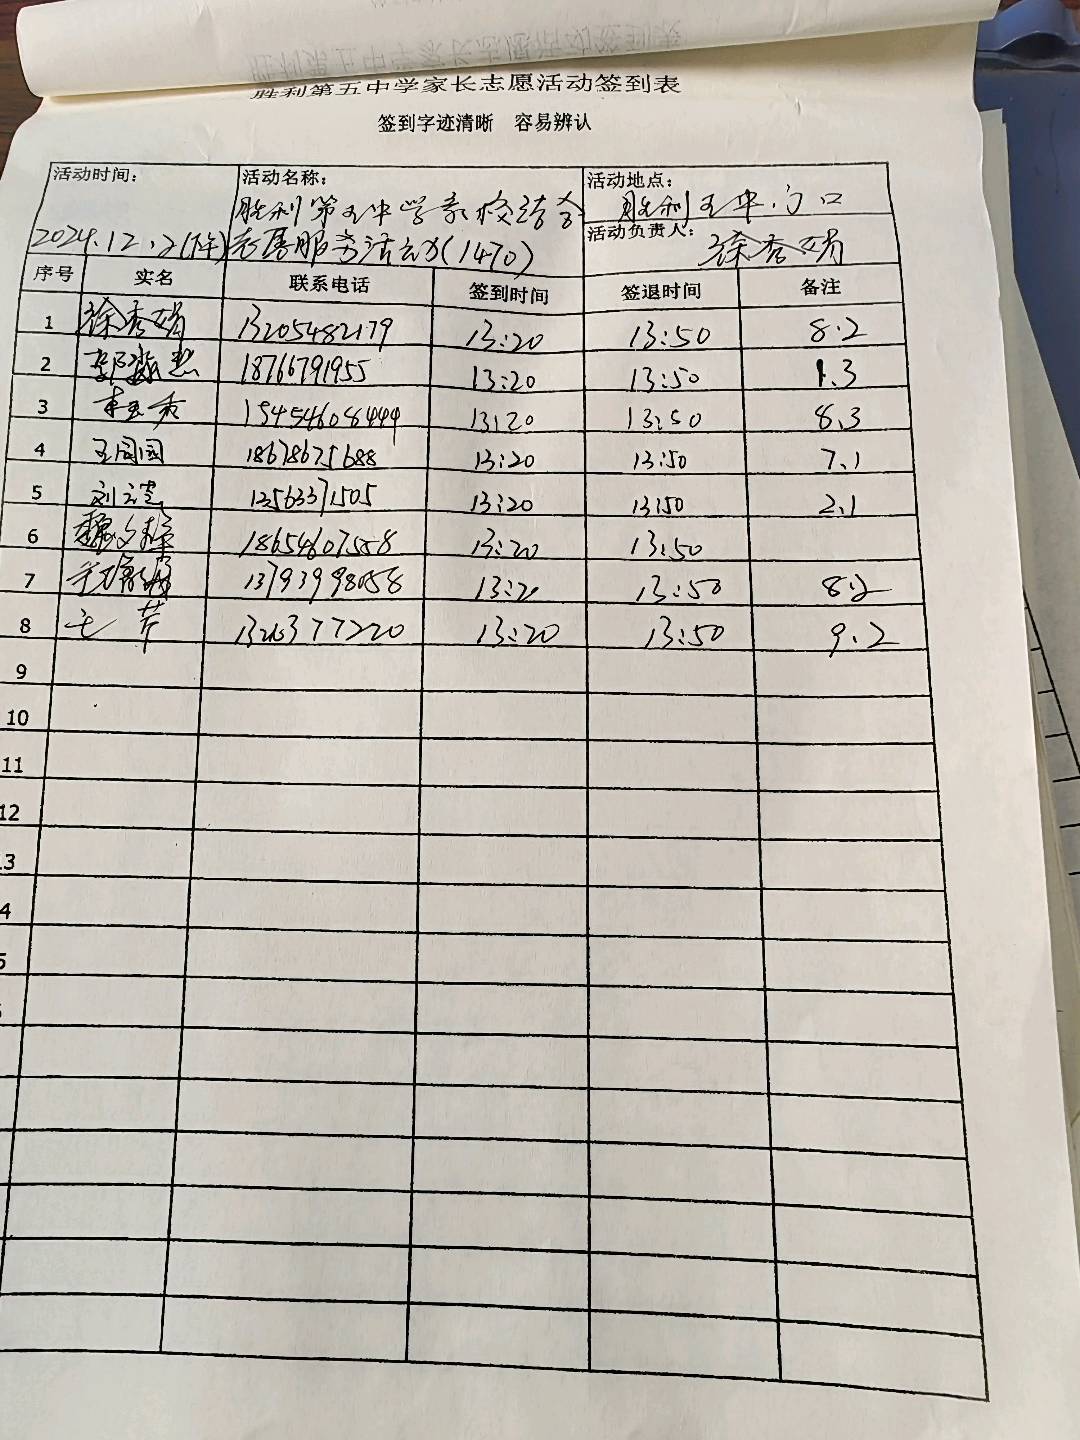 胜利第五中学家长志愿活动签到表
签到字迹清晰 容易辨认
活动时间： 活动名称： 活动地点：
胜利第五中学家校结合 胜利五中门口
2024.12.2(下午) 志愿服务活动(1470) 活动负责人： 徐秀娟
序号 实名 联系电话 签到时间 签退时间 备注
1 徐秀娟 13205482179 13:20 13:50 8.2
2 18766791955 13:20 13:50 1.3
3 13:20 13:50 8.3
4 王同国 18678675688 13:20 13:50 7.1
5 刘 13563371505 13:20 13:50 2.1
6 魏 18654607558 13:20 13:50
7 13793998058 13:20 13:50 8.2
8 王芹 13:20 13:50 9.2
9
10
11
12